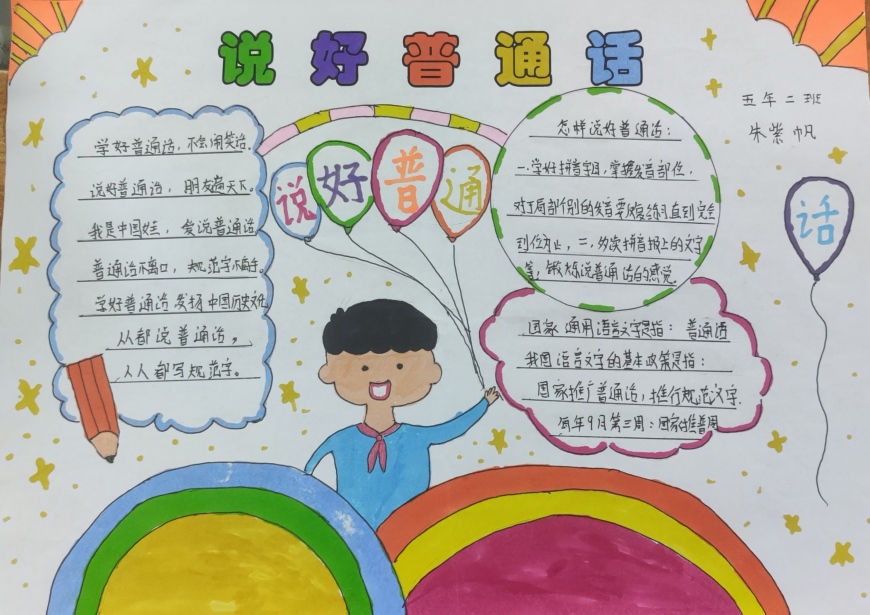 说好普通话
五年二班
朱紫帆
学好普通话,不会闹笑话。
说好普通话,朋友遍天下。
我是中国娃,爱说普通话
普通话不离口,规范字不离手。
学好普通话 发扬中国历史文化
人人都说普通话,
人人都写规范字。
说好普通
话
怎样说好普通话:
一.学好拼音字母,掌握发音部位.
对于局部个别的发音要反复练习直到完全
到位为止,二,多读拼音报上的文字
等,锻炼说普通话的感觉.
国家通用语言文字是指:普通话
我国语言文字的基本政策是指:
国家推广普通话,推行规范汉字.
每年9月第三周:国家推普周